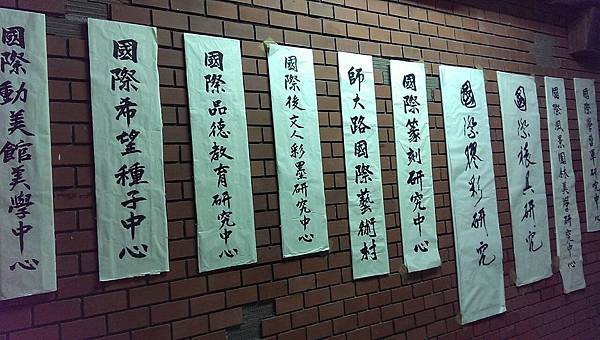 國際動美館美學中心
國際希望種子中心
國際品德教育研究中心
國際後文人彩墨研究中心
師大路國際藝術村
國際篆刻研究中心
國際膠彩研究
國際裱具研究
國際風景園林美學研究中心